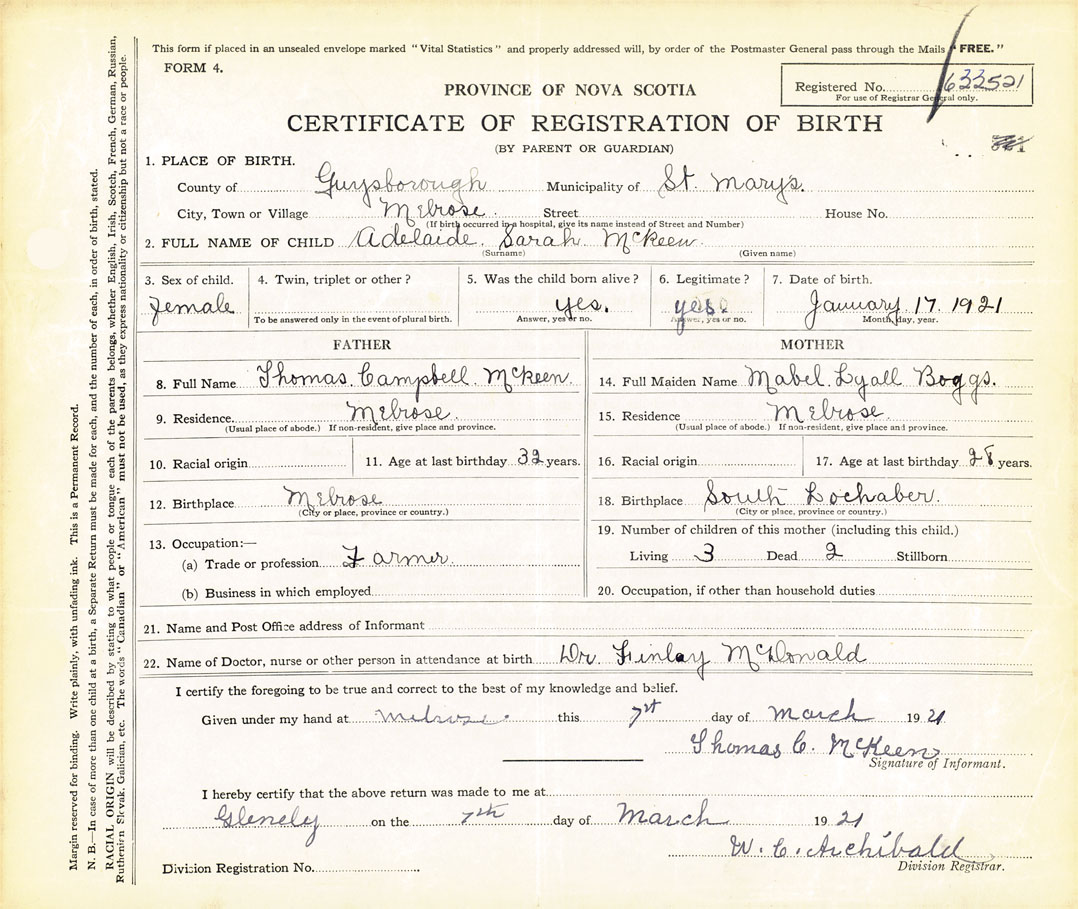 This form if placed in an unsealed envelope marked "Vital Statistics" and properly addressed will, by order of the Postmaster General pass through the Mails "FREE."
FORM 4.
Registered No. 633521
For use of Registrar General only.
PROVINCE OF NOVA SCOTIA
CERTIFICATE OF REGISTRATION OF BIRTH
(BY PARENT OR GUARDIAN)
1. PLACE OF BIRTH.
County of Guysborough Municipality of St. Mary's.
City, Town or Village Melrose. Street House No.
(If birth occurred in a hospital, give its name instead of Street and Number)
2. FULL NAME OF CHILD Adelaide. Sarah McKeen.
(Surname) (Given name)
3. Sex of child. 4. Twin, triplet or other? 5. Was the child born alive? 6. Legitimate? 7. Date of birth.
Female yes. yes. January. 17. 1921
To be answered only in the event of plural birth. Answer, yes or no. Answer, yes or no. Month, day, year.
FATHER
8. Full Name Thomas. Campbell. McKeen.
9. Residence. Melrose.
(Usual place of abode.) If non-resident, give place and province.
10. Racial origin 11. Age at last birthday 32 years.
12. Birthplace Melrose
(City or place, province or country.)
13. Occupation:—
(a) Trade or profession Farmer.
(b) Business in which employed
MOTHER
14. Full Maiden Name Mabel. Lyall Boggs.
15. Residence Melrose.
(Usual place of abode.) If non-resident, give place and province.
16. Racial origin 17. Age at last birthday 28 years.
18. Birthplace South Lochaber.
(City or place, province or country.)
19. Number of children of this mother (including this child.)
Living 3 Dead 2 Stillborn
20. Occupation, if other than household duties
21. Name and Post Office address of Informant
22. Name of Doctor, nurse or other person in attendance at birth Dr. Finlay McDonald
I certify the foregoing to be true and correct to the best of my knowledge and belief.
Given under my hand at Melrose. this 7st day of March 1921
Thomas C. McKeen
Signature of Informant.
I hereby certify that the above return was made to me at
Glenely on the 7th day of March 1921
W. C. Archibald
Division Registrar.
Division Registration No.
Margin reserved for binding. Write plainly, with unfading ink. This is a Permanent Record.
N. B.—In case of more than one child at a birth, a Separate Return must be made for each, and the number of each, in order of birth, stated.
RACIAL ORIGIN will be described by stating to what people or tongue each of the parents belongs, whether English, Irish, Scotch, French, German, Russian,
Ruthenian Slovak, Galician, etc. The words "Canadian" or "American" must not be used, as they express nationality or citizenship but not a race or people.